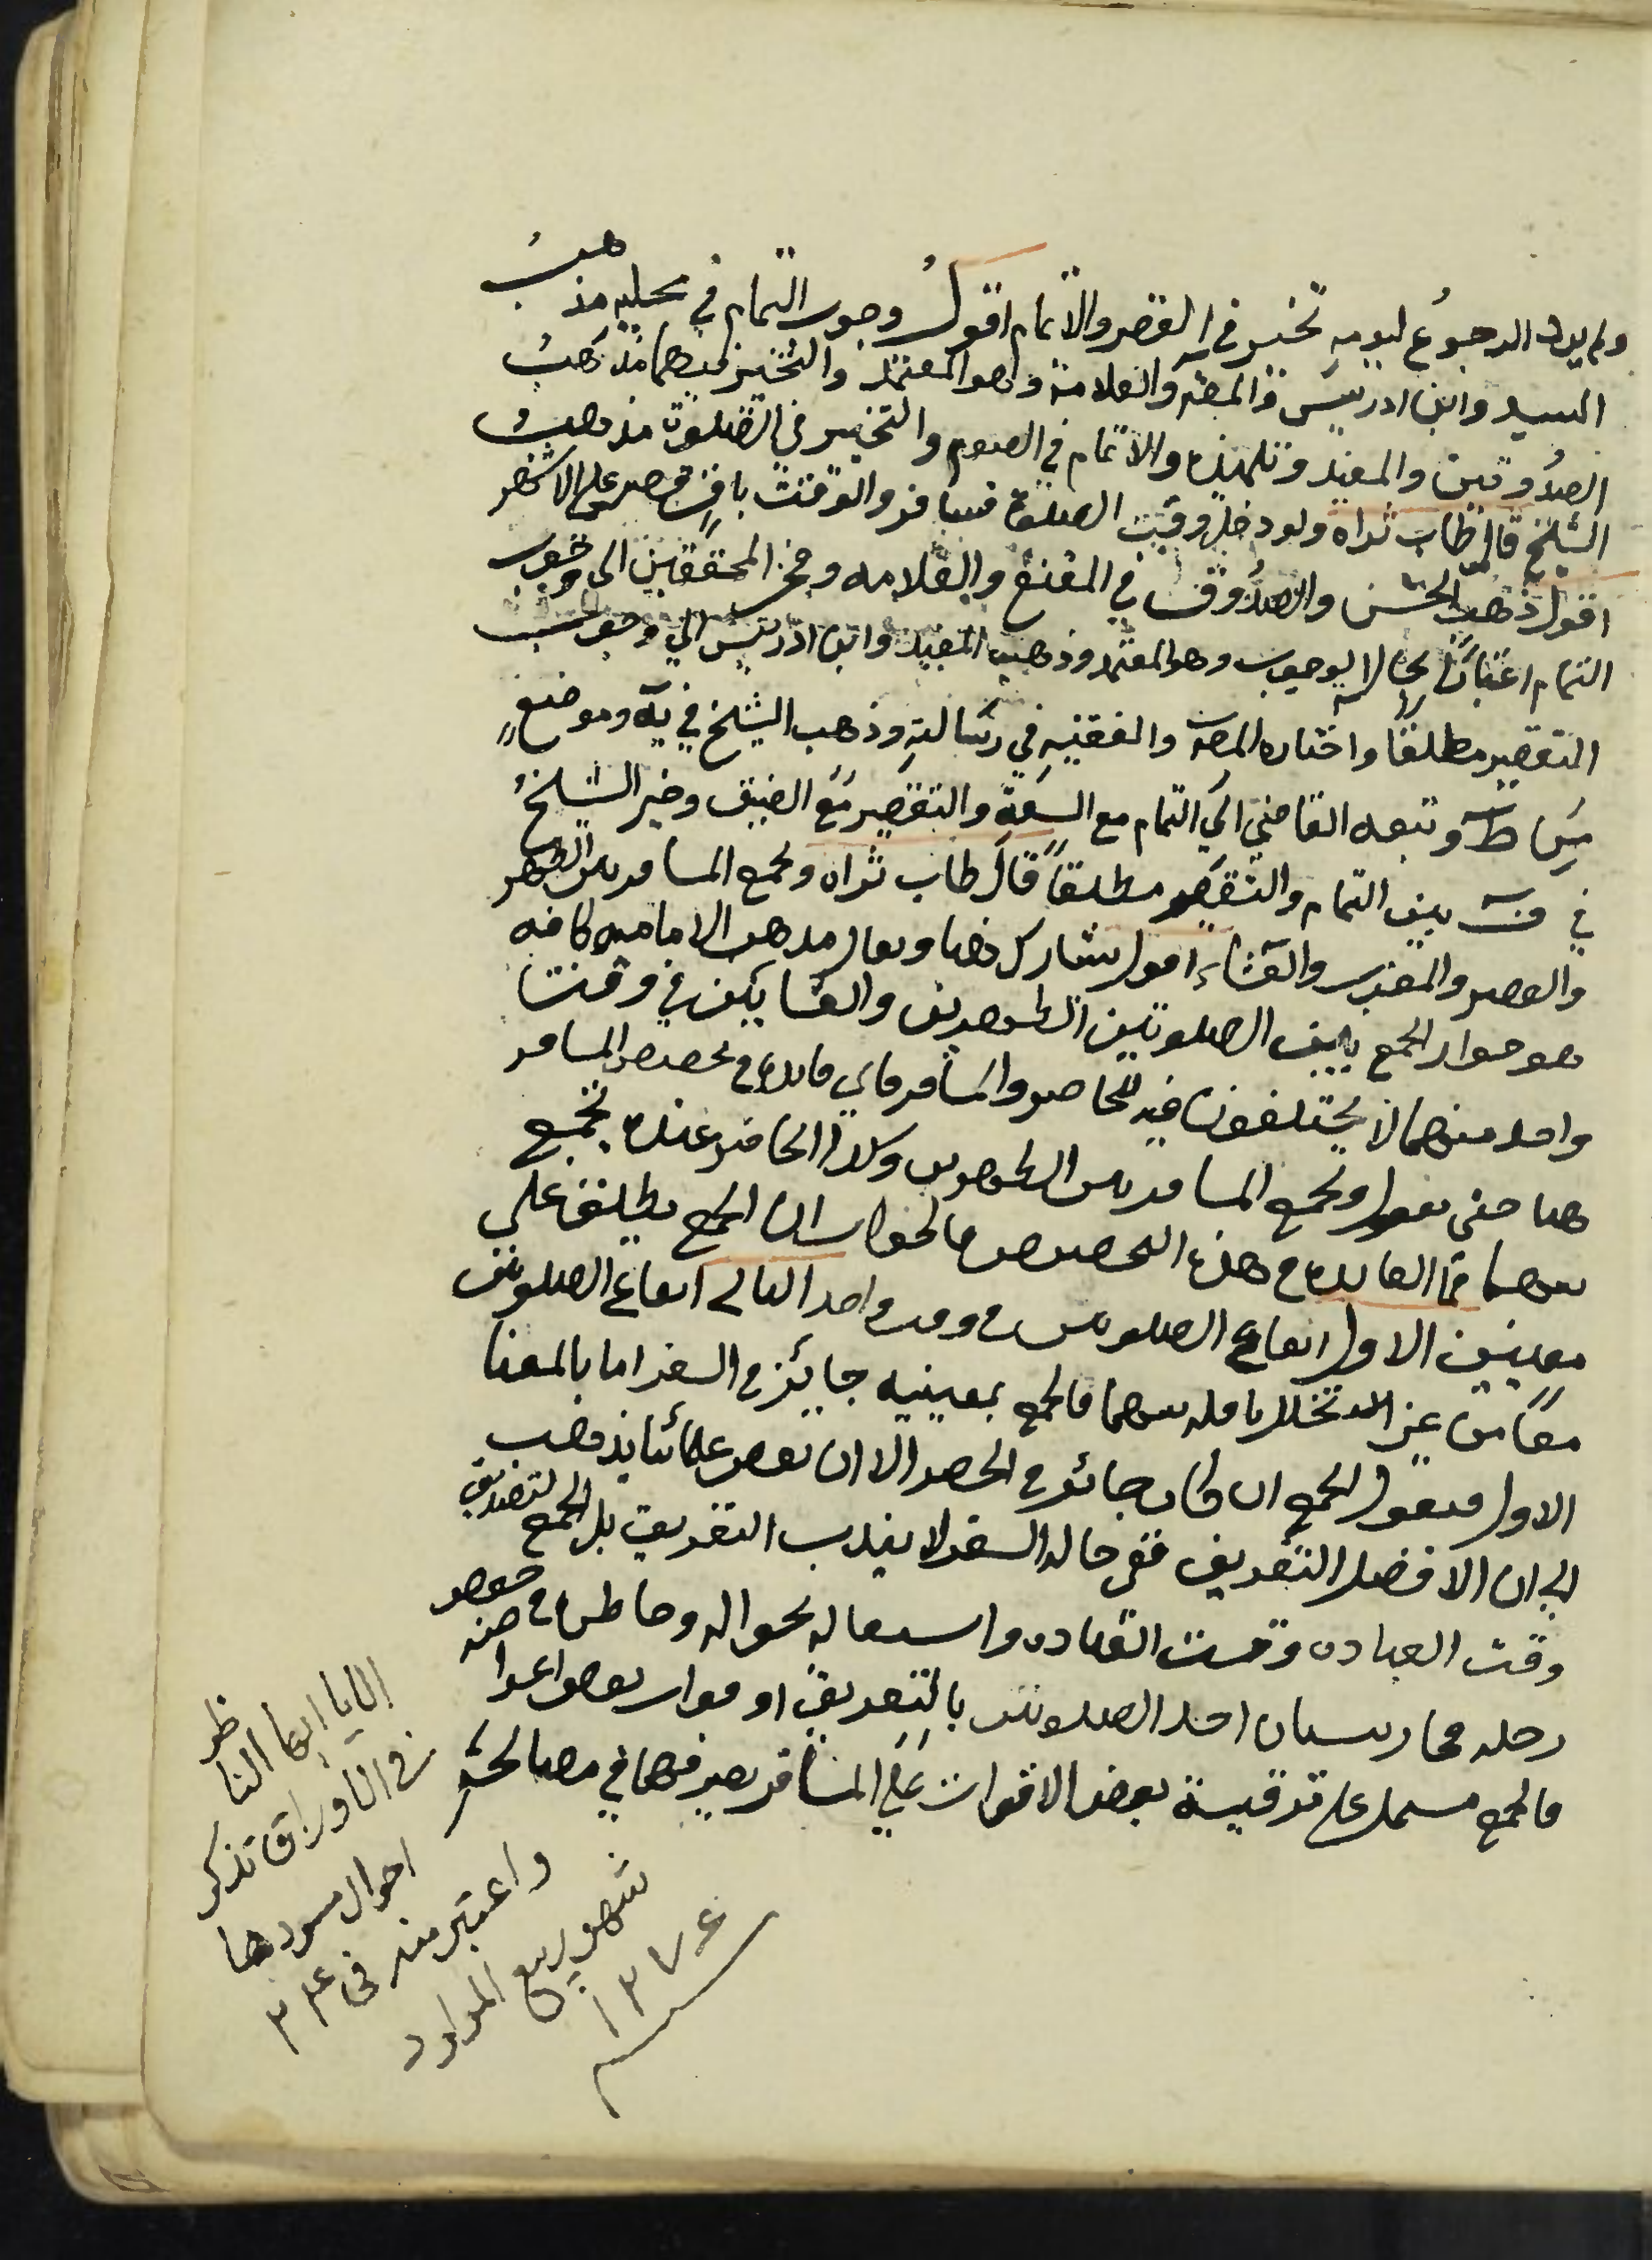 ولم يرد الرجوع ليومه تخير في القصر والاتمام اقول وجوب التمام في محليه مذهب
السيد وابن ادريس والمصـ والعلامة وهو المعتمد والتخيير فيهما مذهب
الصدوقين والمفيد وتلميذه والاتمام في الصوم والتخيير في الصلوة مذهب
الشيخ قال طاب ثراه ولو دخل وقت الصلوة فسافر والوقت باق قصر على الاشهر
اقول ذهب الحسن والصدوق في المقنع والعلامه وفخر المحققين الى وجوب
التمام اعتبارًا بحال الوجوب وهو المعتمد وذهب المفيد وابن ادريس الي وجوب
التقصير مطلقا واختاره المصـ والفقيه في رسالته وذهب الشيخ في يه وموضع
من ط وتبعه القاضي الى التمام مع السعة والتقصير مع الضيق وخير الشيخ
في ف بين التمام والتقصير مطلقًا قال طاب ثراه ويجمع المسافر بين الظهر
والعصر والمغرب والعشاء اقول هنا ويقال مذهب الاماميه كافه
هو جواز الجمع بين الصلوتين الظهرين والعشايين في وقت
واحد منهما لا يختلفون فيه للحاضر والمسافر فاي فائده في تخصيص المسافر
هنا حتى يقول ويجمع المسافر بين الظهرين وكذا الحاضر عنده يجمع
بينهما فما الفايده في هذه التخصيص فالجواب ان الجمع يطلق على
معنيين الاول ايقاع الصلوتين في وقت واحد الثاني ايقاع الصلوتين
معًا من غير تخلل نافله بينهما فالجمع بمعنييه جايز في السفر اما بالمعنا
الاول فنقول الجمع ان كان جائز في الحضر الا ان بعض علمائنا يذهب
الى ان الافضل التفريق ففي حالة السفر لا يندب التفريق بل الجمع لتضيق
وقت العباده وتشتت القلاده واشتغاله بحواله وخاطره في حفظ
رحله فجاز نسيان احد الصلوتين بالتفريق او فوات بعض اغراضه
فالجمع مشتمل على توقية بعض الاقوات على المسافر يصرفها في مصالحه
الايا ايها الناظر
في الاوراق تذكر
احوال مسودها
واعتبر منه في ٢٤
شهر ربيع المولود
١٣٧٤